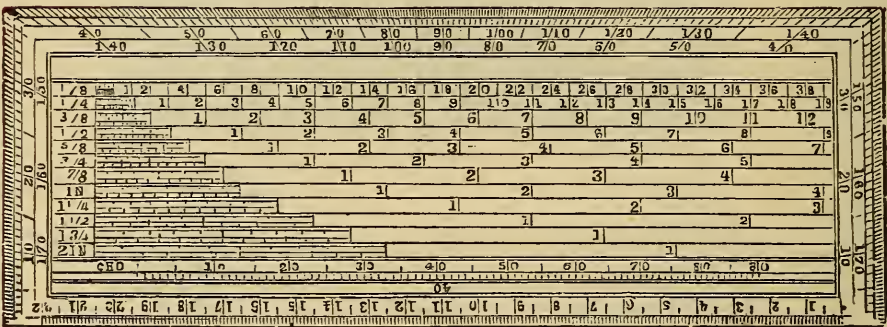 40 50 60 70 80 90 100 110 120 130 140
140 130 120 110 100 90 80 70 60 50 40
1/8 2 4 6 8 10 12 14 16 18 20 22 24 26 28 30 32 34 36 38
1/4 1 2 3 4 5 6 7 8 9 10 11 12 13 14 15 16 17 18 19
3/8 1 2 3 4 5 6 7 8 9 10 11 12
1/2 1 2 3 4 5 6 7 8
5/8 1 2 3 4 5 6 7
3/4 1 2 3 4 5
7/8 1 2 3 4
1N 1 2 3 4
1 1/4 1 2 3
1 1/2 1 2
1 3/4 1
2IN 1
CHO 10 20 30 40 50 60 70 80
40
22 21 20 19 18 17 16 15 14 13 12 11 10 9 8 7 6 5 4 3 2 1
30 150
20 160
10 170
30 150
20 160
10 170